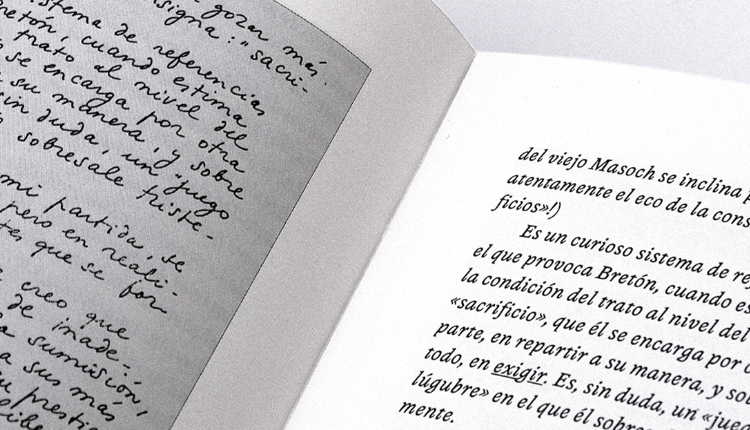 gozar más.
signa: "sacri-
stema de referencias
retón, cuando estima
trato al nivel del
se encarga por otra
su manera, y sobre
sin duda, un "juego
sobresale triste-
mi partida, se
pero en reali-
tes, que se for
creo que
de inade-
a sumisión,
a sus más
su prestig
del viejo Masoch se inclina p
atentamente el eco de la cons
ficios»!)
Es un curioso sistema de re
el que provoca Bretón, cuando es
la condición del trato al nivel del
«sacrificio», que él se encarga por o
parte, en repartir a su manera, y so
todo, en exigir. Es, sin duda, un «jueg
lúgubre» en el que él sobres
mente.